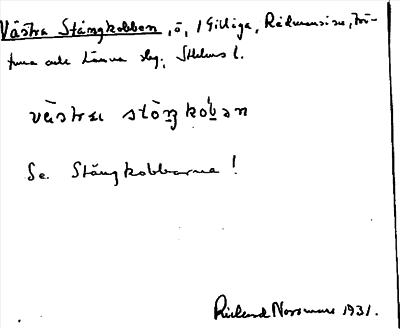 Västra Stångkobben, ö, i Gillöga, Rådmansö sn, Frö-
tuna och Länna slg, Sthlms l.
västra stöŋkob̀ən
Se Stångkobbarna!
Rickard Norsmans 1931.